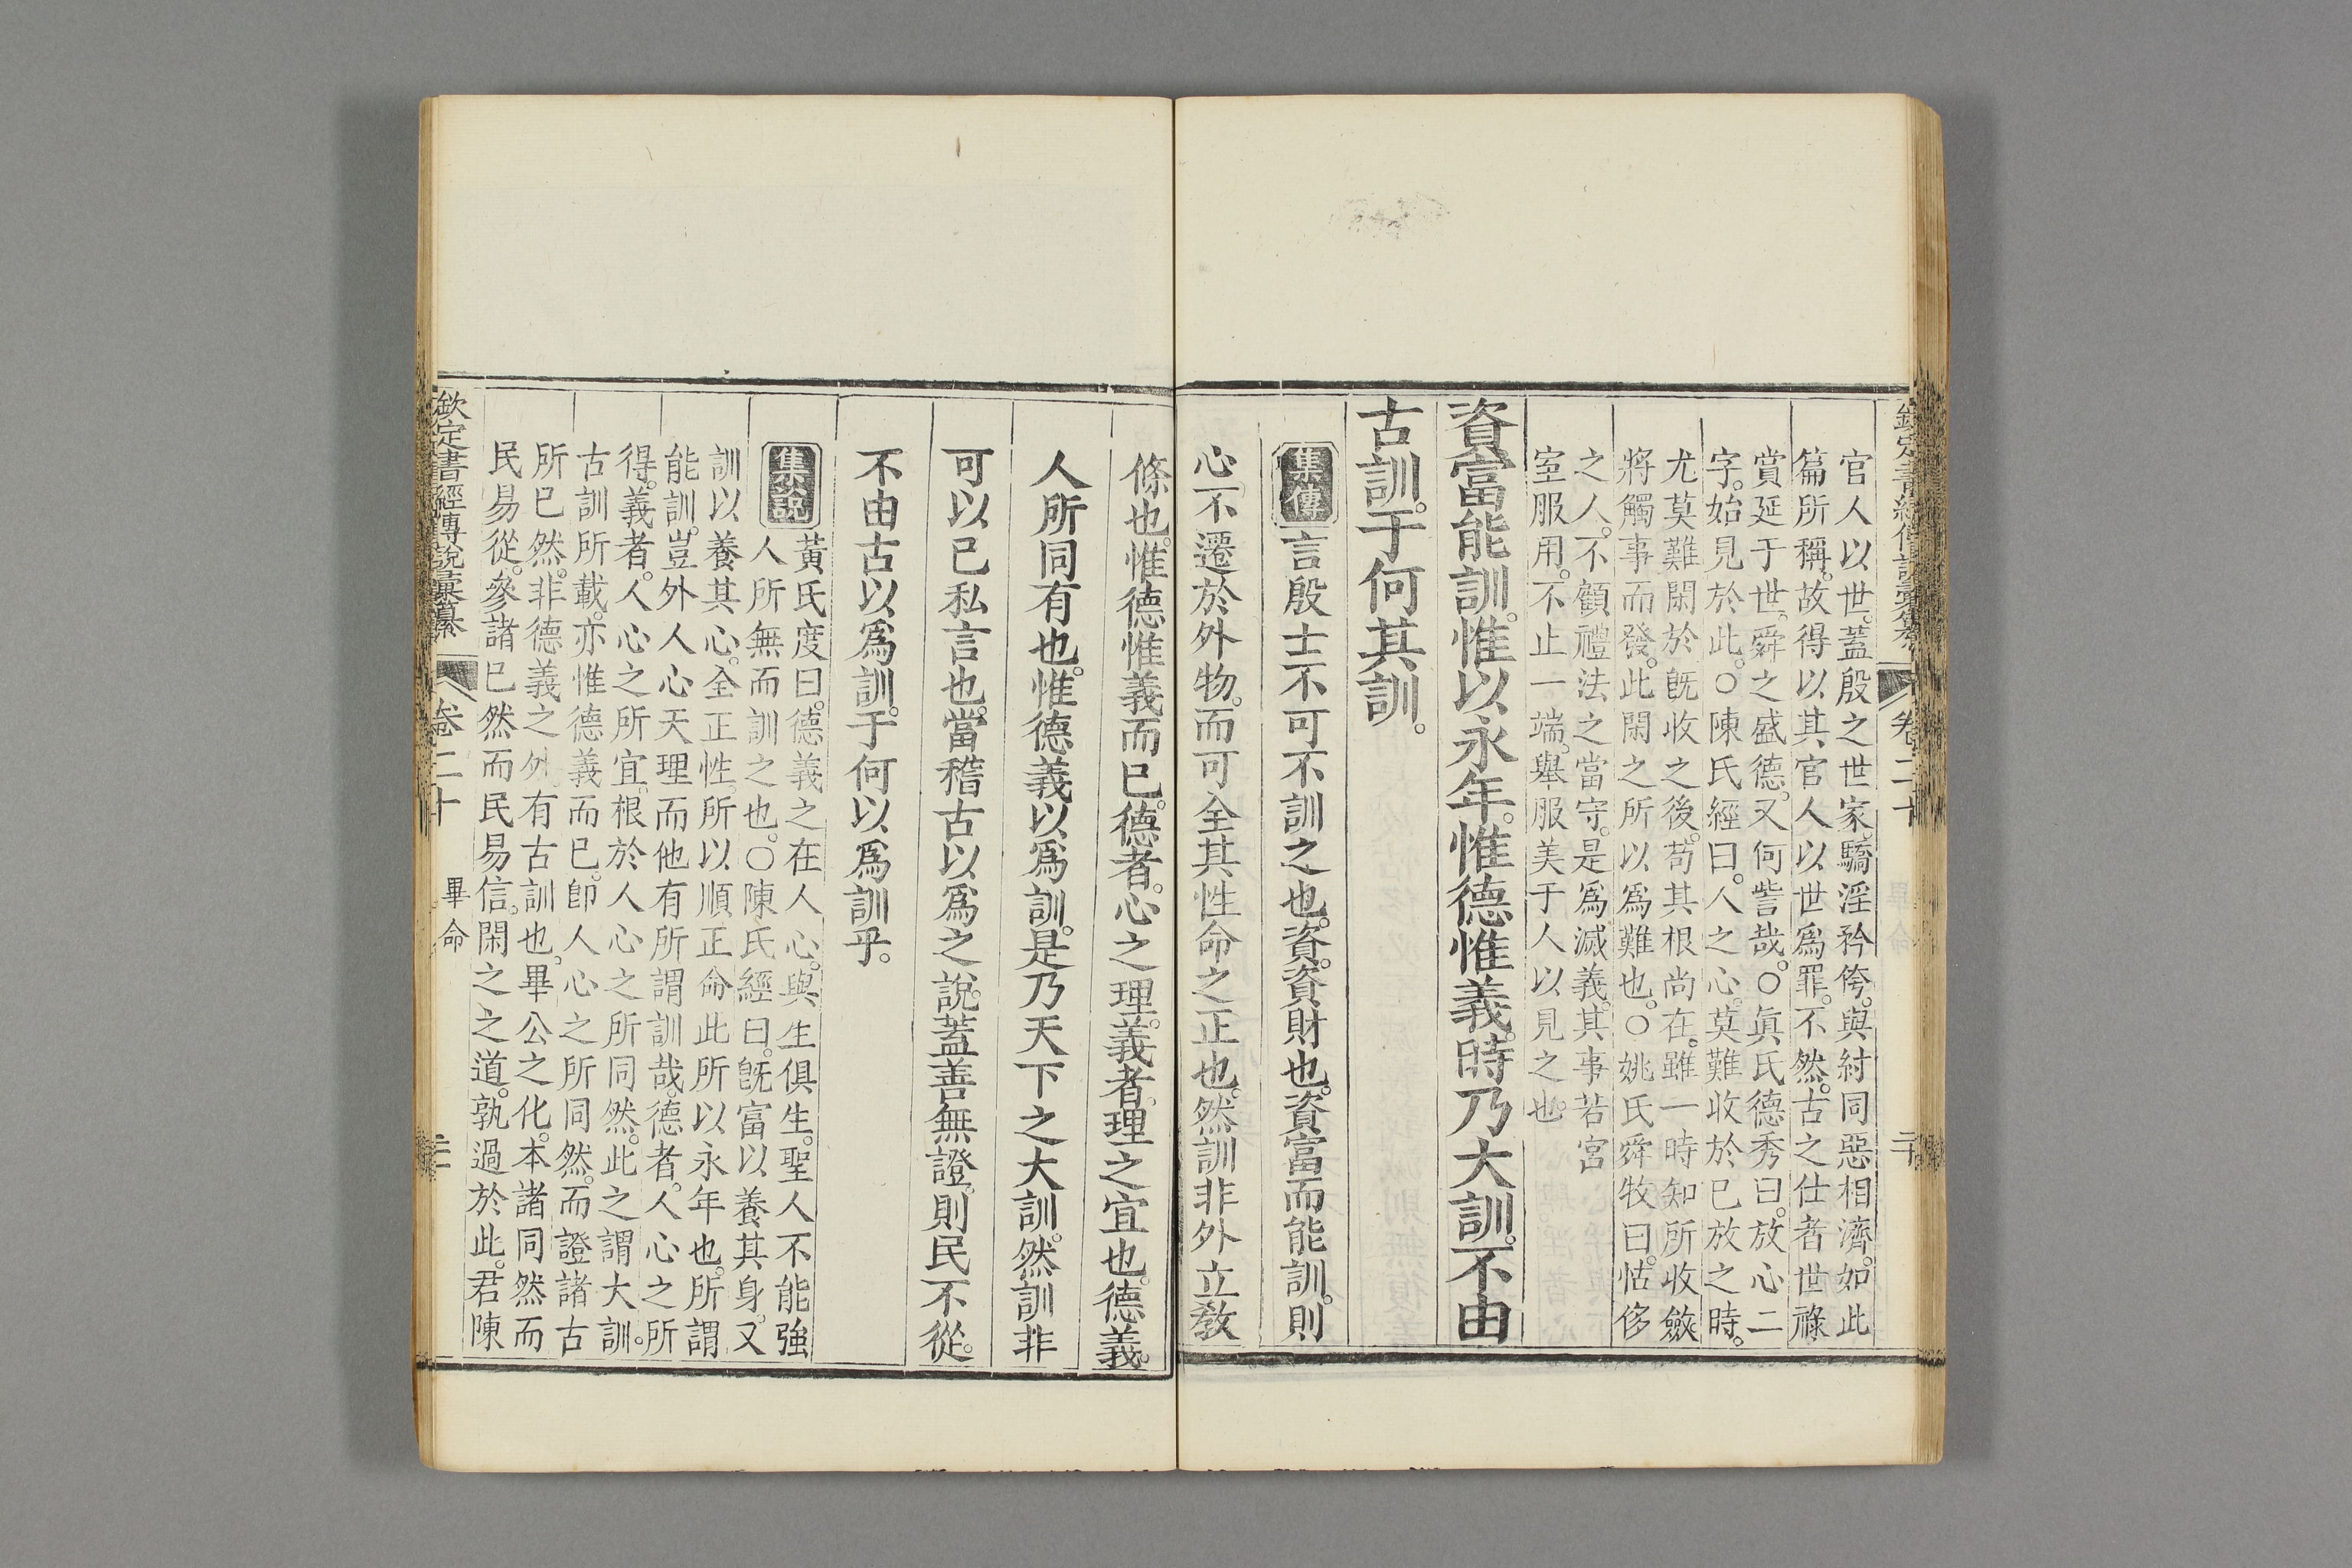 欽定書經傳說彙纂 卷二十
官人以世。蓋殷之世家。驕淫矜侉。與紂同惡相濟。如此
篇所稱。故得以其官人以世爲罪。不然。古之仕者世祿
賞延于世。舜之盛德。又何訾哉。○眞氏德秀曰。放心二
字。始見於此。○陳氏經曰。人之心。莫難收於已放之時。
尤莫難閑於旣收之後。苟其根尚在。雖一時知所收斂。
將觸事而發。此閑之所以爲難也。○姚氏舜牧曰。怙侈
之人。不顧禮法之當守。是爲滅義。其事若宮
室服用。不止一端。舉服美于人以見之也。
資富能訓。惟以永年。惟德惟義。時乃大訓。不由
古訓。于何其訓。
集傳 言殷士不可不訓之也。資。資財也。資富而能訓。則
心不遷於外物。而可全其性命之正也。然訓非外立敎
條也。惟德惟義而已。德者。心之理。義者。理之宜也。德義。
人所同有也。惟德義以爲訓。是乃天下之大訓。然訓非
可以已私言也。當稽古以爲之說。蓋善無證。則民不從。
不由古以爲訓。于何以爲訓乎。
集說 黃氏度曰。德義之在人心。與生俱生。聖人不能強
人所無而訓之也。○陳氏經曰。旣富以養其身。又
訓以養其心。全正性。所以順正命。此所以永年也。所謂
能訓。豈外人心天理而他有所謂訓哉。德者。人心之所
得。義者。人心之所宜。根於人心之所同然。此之謂大訓。
古訓所載。亦惟德義而已。卽人心之所同然。而證諸古
所已然。非德義之外有古訓也。畢公之化。本諸同然而
民易從。參諸已然而民易信。閑之之道。孰過於此。君陳
欽定書經傳說彙纂 卷二十 畢命